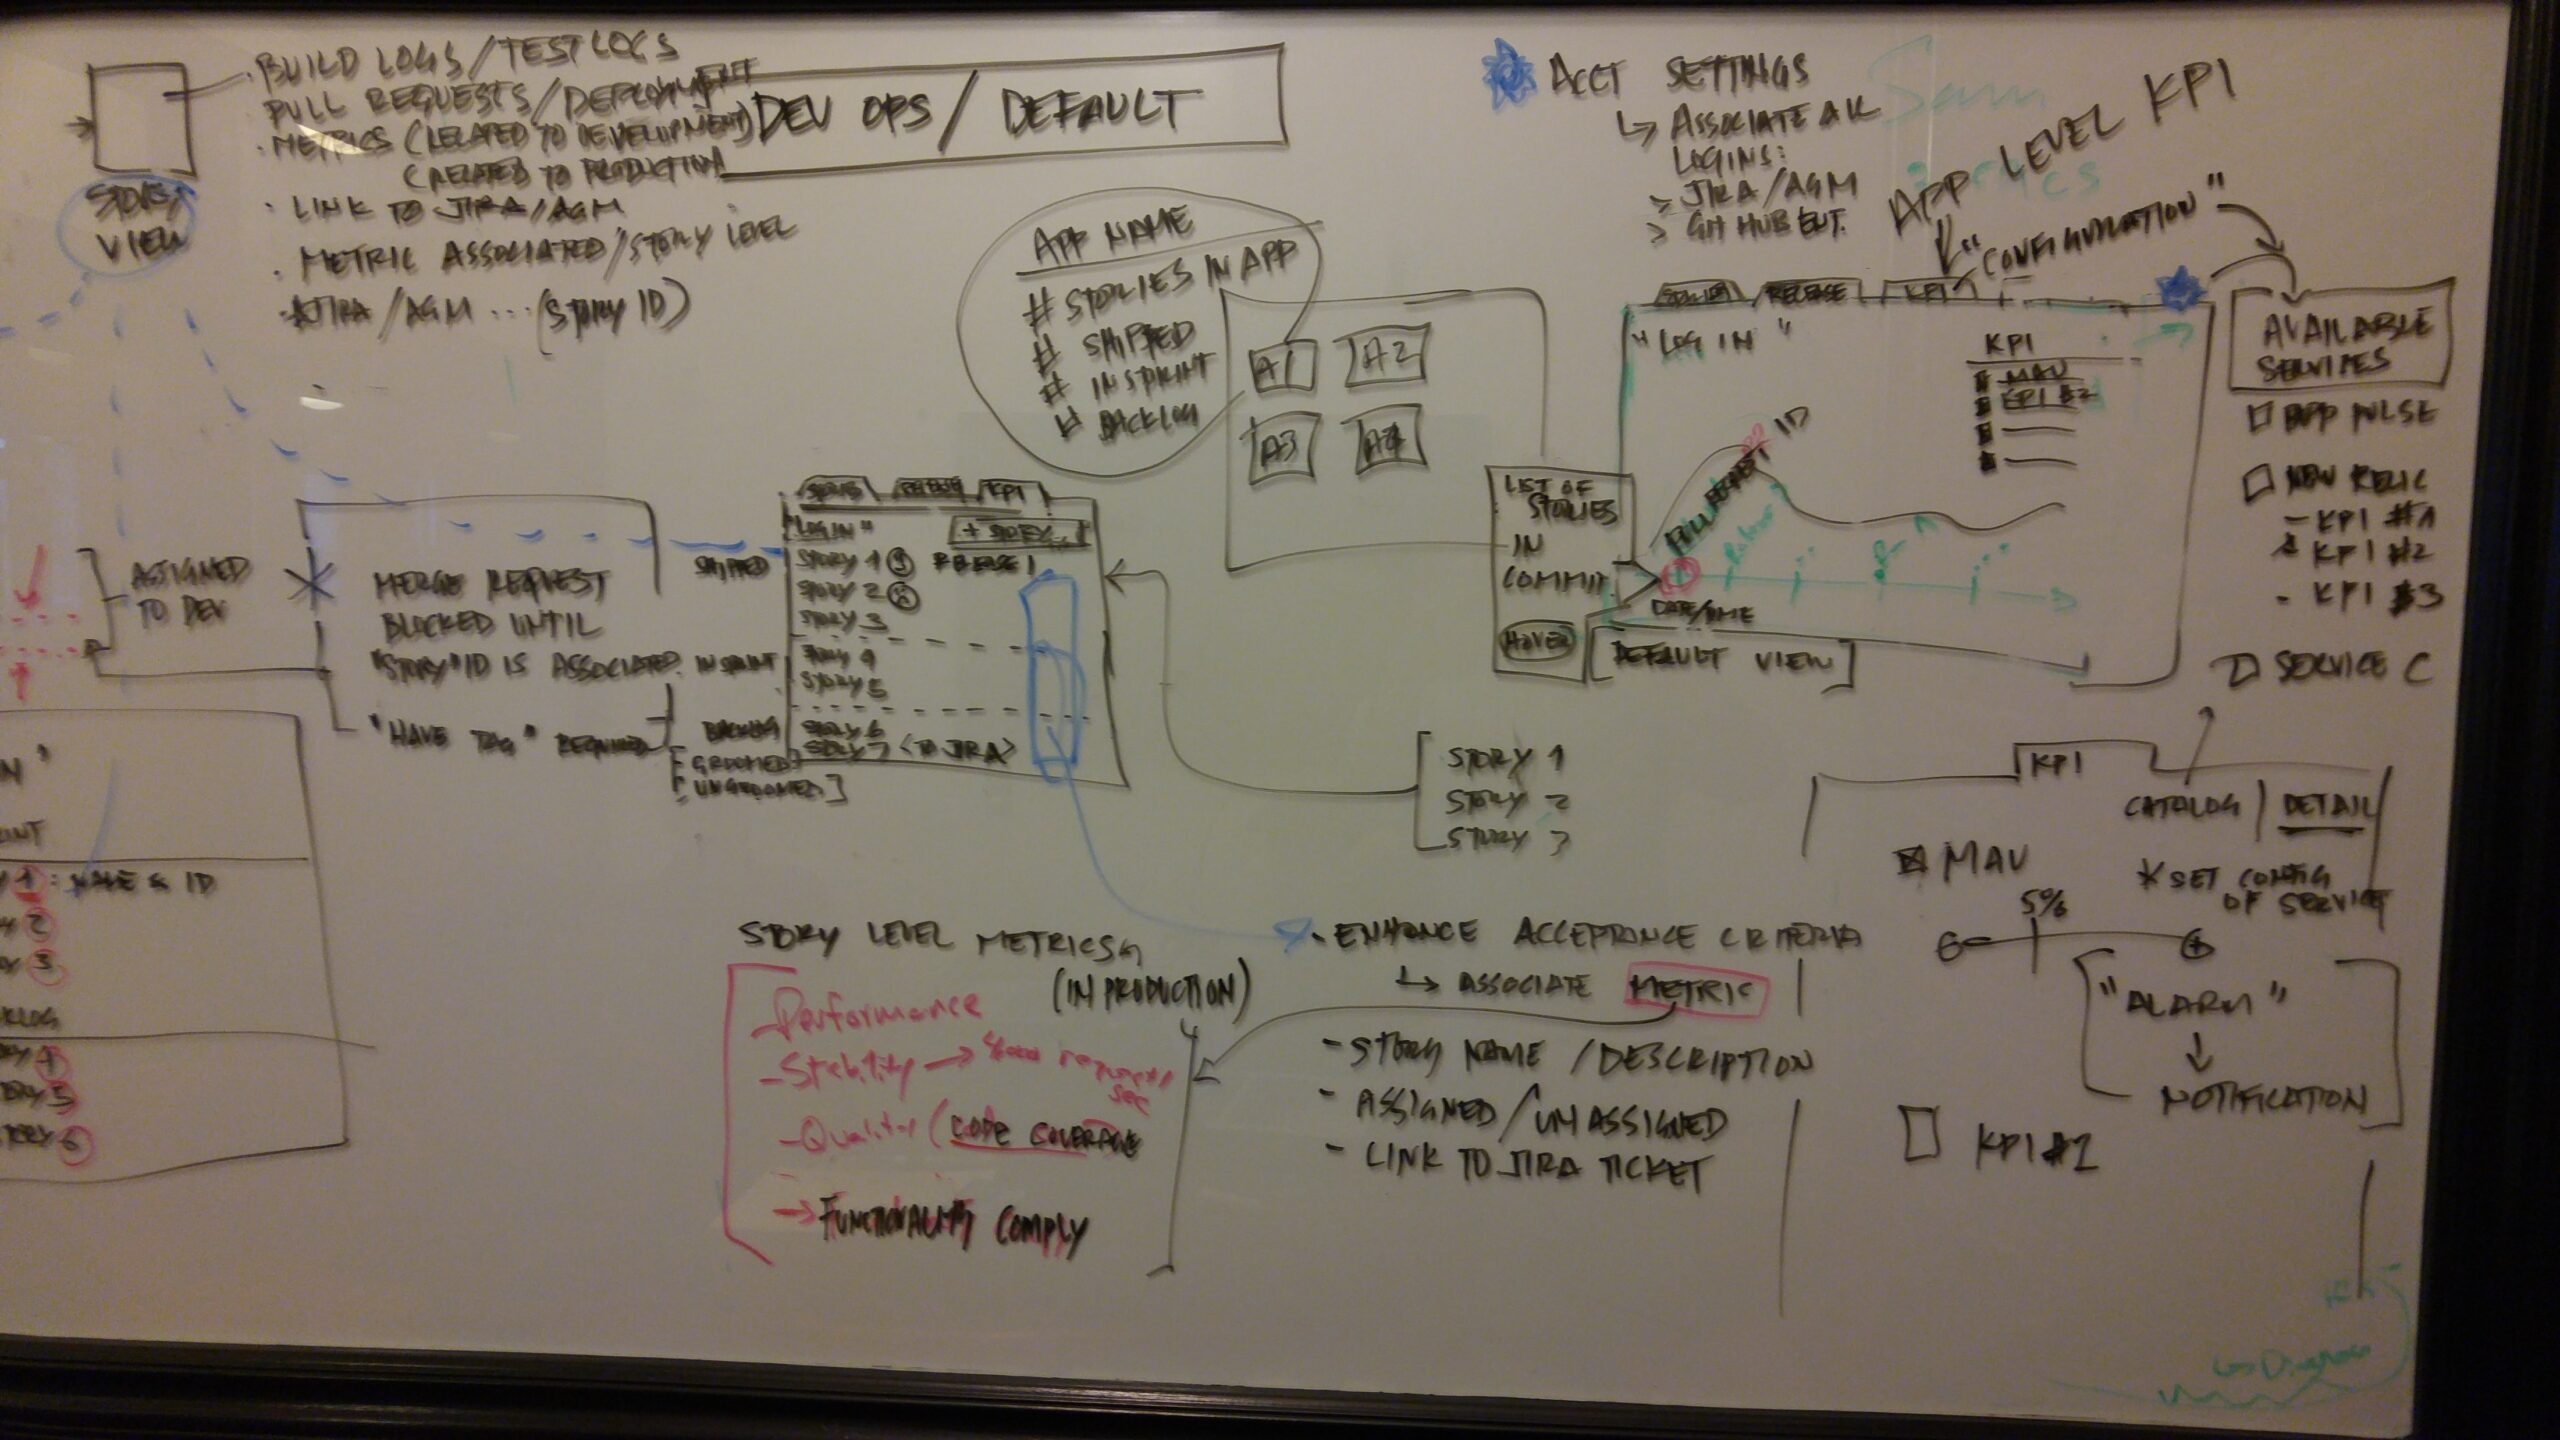 BUILD LOGS/TEST LOGS
PULL REQUESTS/DEPLOYMENT
METRICS (RELATED TO DEVELOPMENT)
(RELATED TO PRODUCTION
LINK TO JIRA/AGM
METRIC ASSOCIATED/STORY LEVEL
JIRA/AGM ... (STORY ID)
STORY
VIEW
DEV OPS/ DEFAULT
APP NAME
# STORIES IN APP
# SHIPPED
# IN SPRINT
# BACKLOG
A1
A2
A3
A4
ACCT SETTINGS
ASSOCIATE ALL
LOGINS:
> JIRA/AGM
> GIT HUB ENT.
Sam
APP LEVEL KPI
"CONFIGURATION"
STORIES
RELEASE
KPI
"LOG IN"
KPI
MAU
KPI #2
PULL REQUEST ID
Release
DATE/TIME
[DEFAULT VIEW]
LIST OF
STORIES
IN
COMMIT
HOVER
AVAILABLE
SERVICES
APP PULSE
NEW RELIC
- KPI #1
KPI #2
- KPI #3
SERVICE C
ASSIGNED
TO DEV
MERGE REQUEST
BLOCKED UNTIL
"STORY" ID IS ASSOCIATED.
"HAVE TAG" REQUIRED
STORIES
RELEASE
KPI
"LOGIN"
+ STORY
SHIPPED
STORY 1
RELEASE 1
STORY 2
STORY 3
IN SPRINT
STORY 4
STORY 5
BACKLOG
STORY 6
STORY 7 <TO JIRA>
[GROOMED
UNGROOMED]
STORY 1
STORY 2
STORY 3
KPI
CATALOG | DETAIL
MAU
* SET CONFIG
OF SERVICE
5%
"ALARM"
NOTIFICATION
KPI #2
: NAME & ID
2
3
4
5
6
STORY LEVEL METRICS
(IN PRODUCTION)
- Performance
- Stability → requests/
sec
- Quality (CODE COVERAGE
→ FUNCTIONALITY COMPLY
- ENHANCE ACCEPTANCE CRITERIA
↳ ASSOCIATE METRIC
- STORY NAME / DESCRIPTION
- ASSIGNED/UNASSIGNED
- LINK TO JIRA TICKET